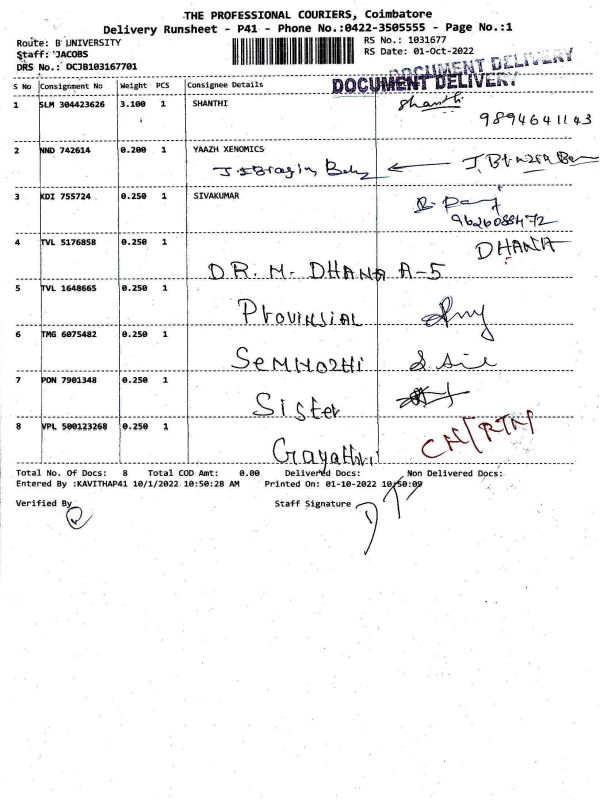 THE PROFESSIONAL COURIERS, Coimbatore
Delivery Runsheet - P41 - Phone No.:0422-3505555 - Page No.:1
Route: B UNIVERSITY
RS No.: 1031677
Staff: JACOBS
RS Date: 01-Oct-2022
DRS No.: DCJB103167701
DOCUMENT DELIVERY
DOCUMENT DELIVERY
S No Consignment No Weight PCS Consignee Details
1 SLM 304423626 3.100 1 SHANTHI Shanthi
9894641143
2 NND 742614 0.200 1 YAAZH XENOMICS
3 KDI 755724 0.250 1 SIVAKUMAR
9626088472
4 TVL 5176858 0.250 1 DHANA
DR. M. DHANA A-5
5 TVL 1648665 0.250 1
PROVINSIAL
6 TMG 6075482 0.250 1
SEMMOZHI
7 PON 7901348 0.250 1
Sister
8 VPL 500123268 0.250 1
Gayathri
Total No. Of Docs: 8 Total COD Amt: 0.00 Delivered Docs: Non Delivered Docs:
Entered By :KAVITHAP41 10/1/2022 10:50:28 AM Printed On: 01-10-2022 10:50:09
Verified By
Staff Signature